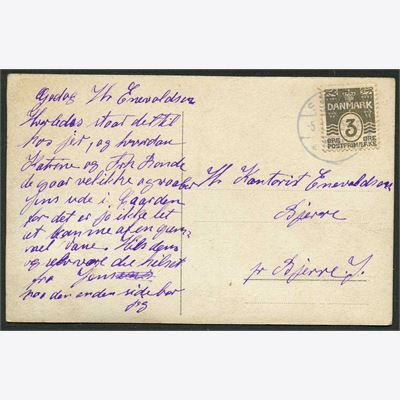 Godag Hr Enevoldsen
Hvorledes staar det til
hos jer, og hvordan
Katrine og Frk Bonde
de gaar vel ikke og
Jens ude i Gaarden
for det er jo ikke let
at komme af en gam-
mel Vane. Hils dem
og være de hilset
fra Jens
paa den anden side bor
jeg
DANMARK
3
ØRE ØRE
POSTFRIMÆRKE
Hr Kantorist Enevoldsen
Bjerre
pr Bjerre J.